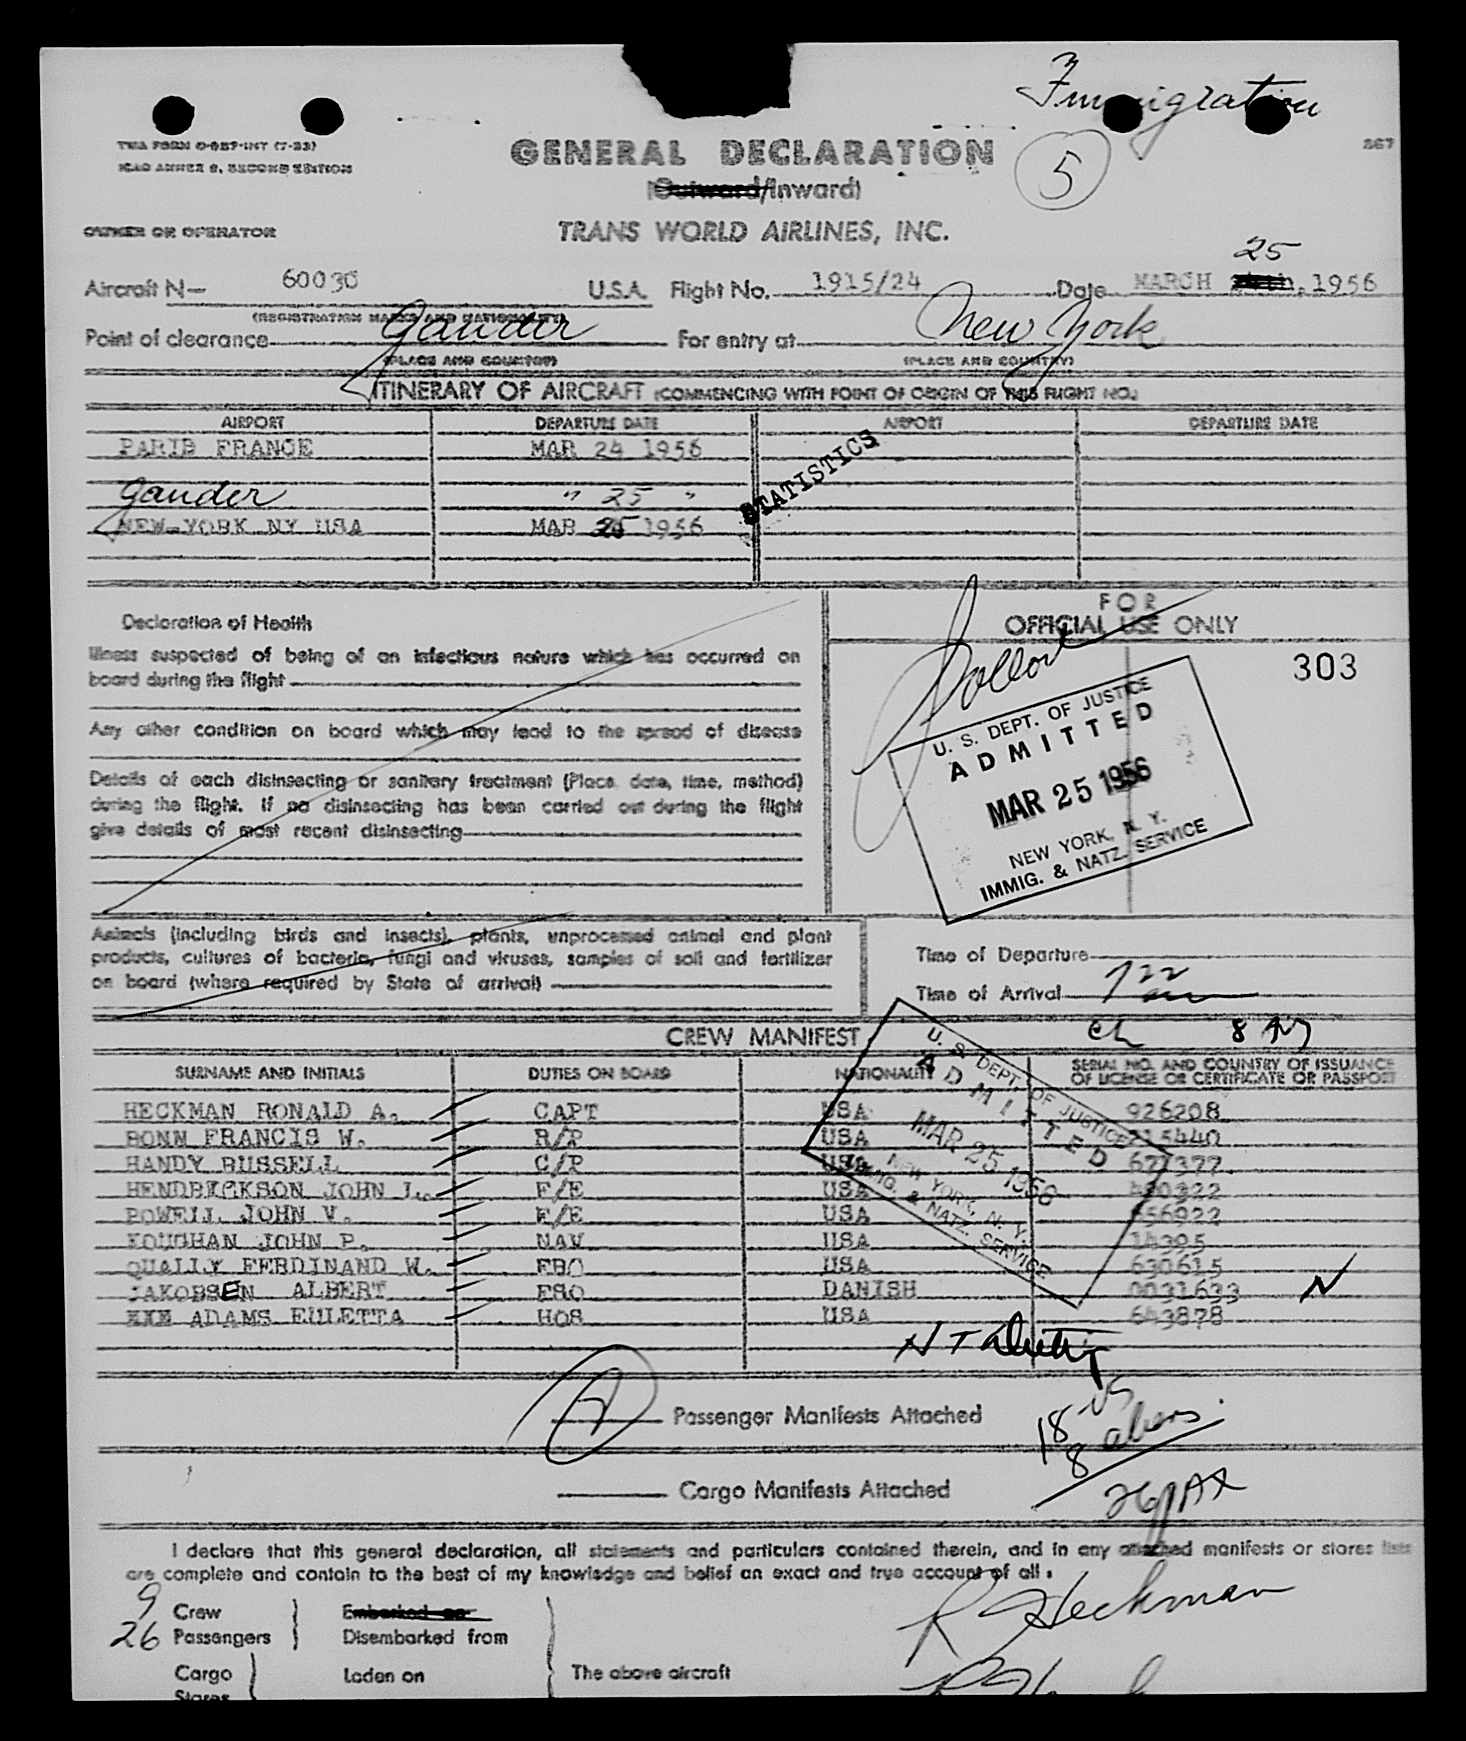 Immigration
TWA FORM O-927-INT (7-53)
ICAO ANNEX 9, SECOND EDITION
GENERAL DECLARATION
5
267
(Outward/Inward)
OWNER OR OPERATOR
TRANS WORLD AIRLINES, INC.
25
Aircraft N— 6003C U.S.A. Flight No. 1915/24 Date MARCH 24th, 1956
(REGISTRATION MARKS AND NATIONALITY)
Point of clearance Gander For entry at New York
(PLACE AND COUNTRY) (PLACE AND COUNTRY)
ITINERARY OF AIRCRAFT (COMMENCING WITH POINT OF ORIGIN OF THIS FLIGHT NO.)
AIRPORT DEPARTURE DATE AIRPORT DEPARTURE DATE
PARIS FRANCE MAR 24 1956
STATISTICS
Gander " 25 "
NEW YORK NY USA MAR 25 1956
Declaration of Health
FOR
OFFICIAL USE ONLY
Illness suspected of being of an infectious nature which has occurred on
board during the flight
303
Any other condition on board which may lead to the spread of disease
Details of each disinsecting or sanitary treatment (Place, date, time, method)
during the flight. If no disinsecting has been carried out during the flight
give details of most recent disinsecting
U. S. DEPT. OF JUSTICE
ADMITTED
MAR 25 1956
NEW YORK, N. Y.
IMMIG. & NATZ. SERVICE
Animals (including birds and insects), plants, unprocessed animal and plant
products, cultures of bacteria, fungi and viruses, samples of soil and fertilizer
on board (where required by State of arrival)
Time of Departure
Time of Arrival
CREW MANIFEST
SURNAME AND INITIALS DUTIES ON BOARD NATIONALITY SERIAL NO. AND COUNTRY OF ISSUANCE
OF LICENSE OR CERTIFICATE OR PASSPORT
HECKMAN RONALD A. CAPT USA 926208
BONN FRANCIS W. R/P USA 215440
HANDY RUSSELL C/P USA 677377
HENDRICKSON JOHN L. F/E USA
POWELL JOHN V. F/E USA 656922
KOUGHAN JOHN P. NAV USA 14395
QUALLY FERDINAND W. FRO USA 630615
JAKOBSEN ALBERT FSO DANISH 0031633 N
ADAMS EULETTA HOS USA 643878
U. S. DEPT. OF JUSTICE
ADMITTED
MAR 25 1956
NEW YORK, N. Y.
IMMIG. & NATZ. SERVICE
Passenger Manifests Attached
18 US
8 aliens
Cargo Manifests Attached
26 PAX
I declare that this general declaration, all statements and particulars contained therein, and in any attached manifests or stores lists
are complete and contain to the best of my knowledge and belief an exact and true account of all:
R Heckman
9 Crew Embarked on
26 Passengers Disembarked from
Cargo Laden on The above aircraft
Stores